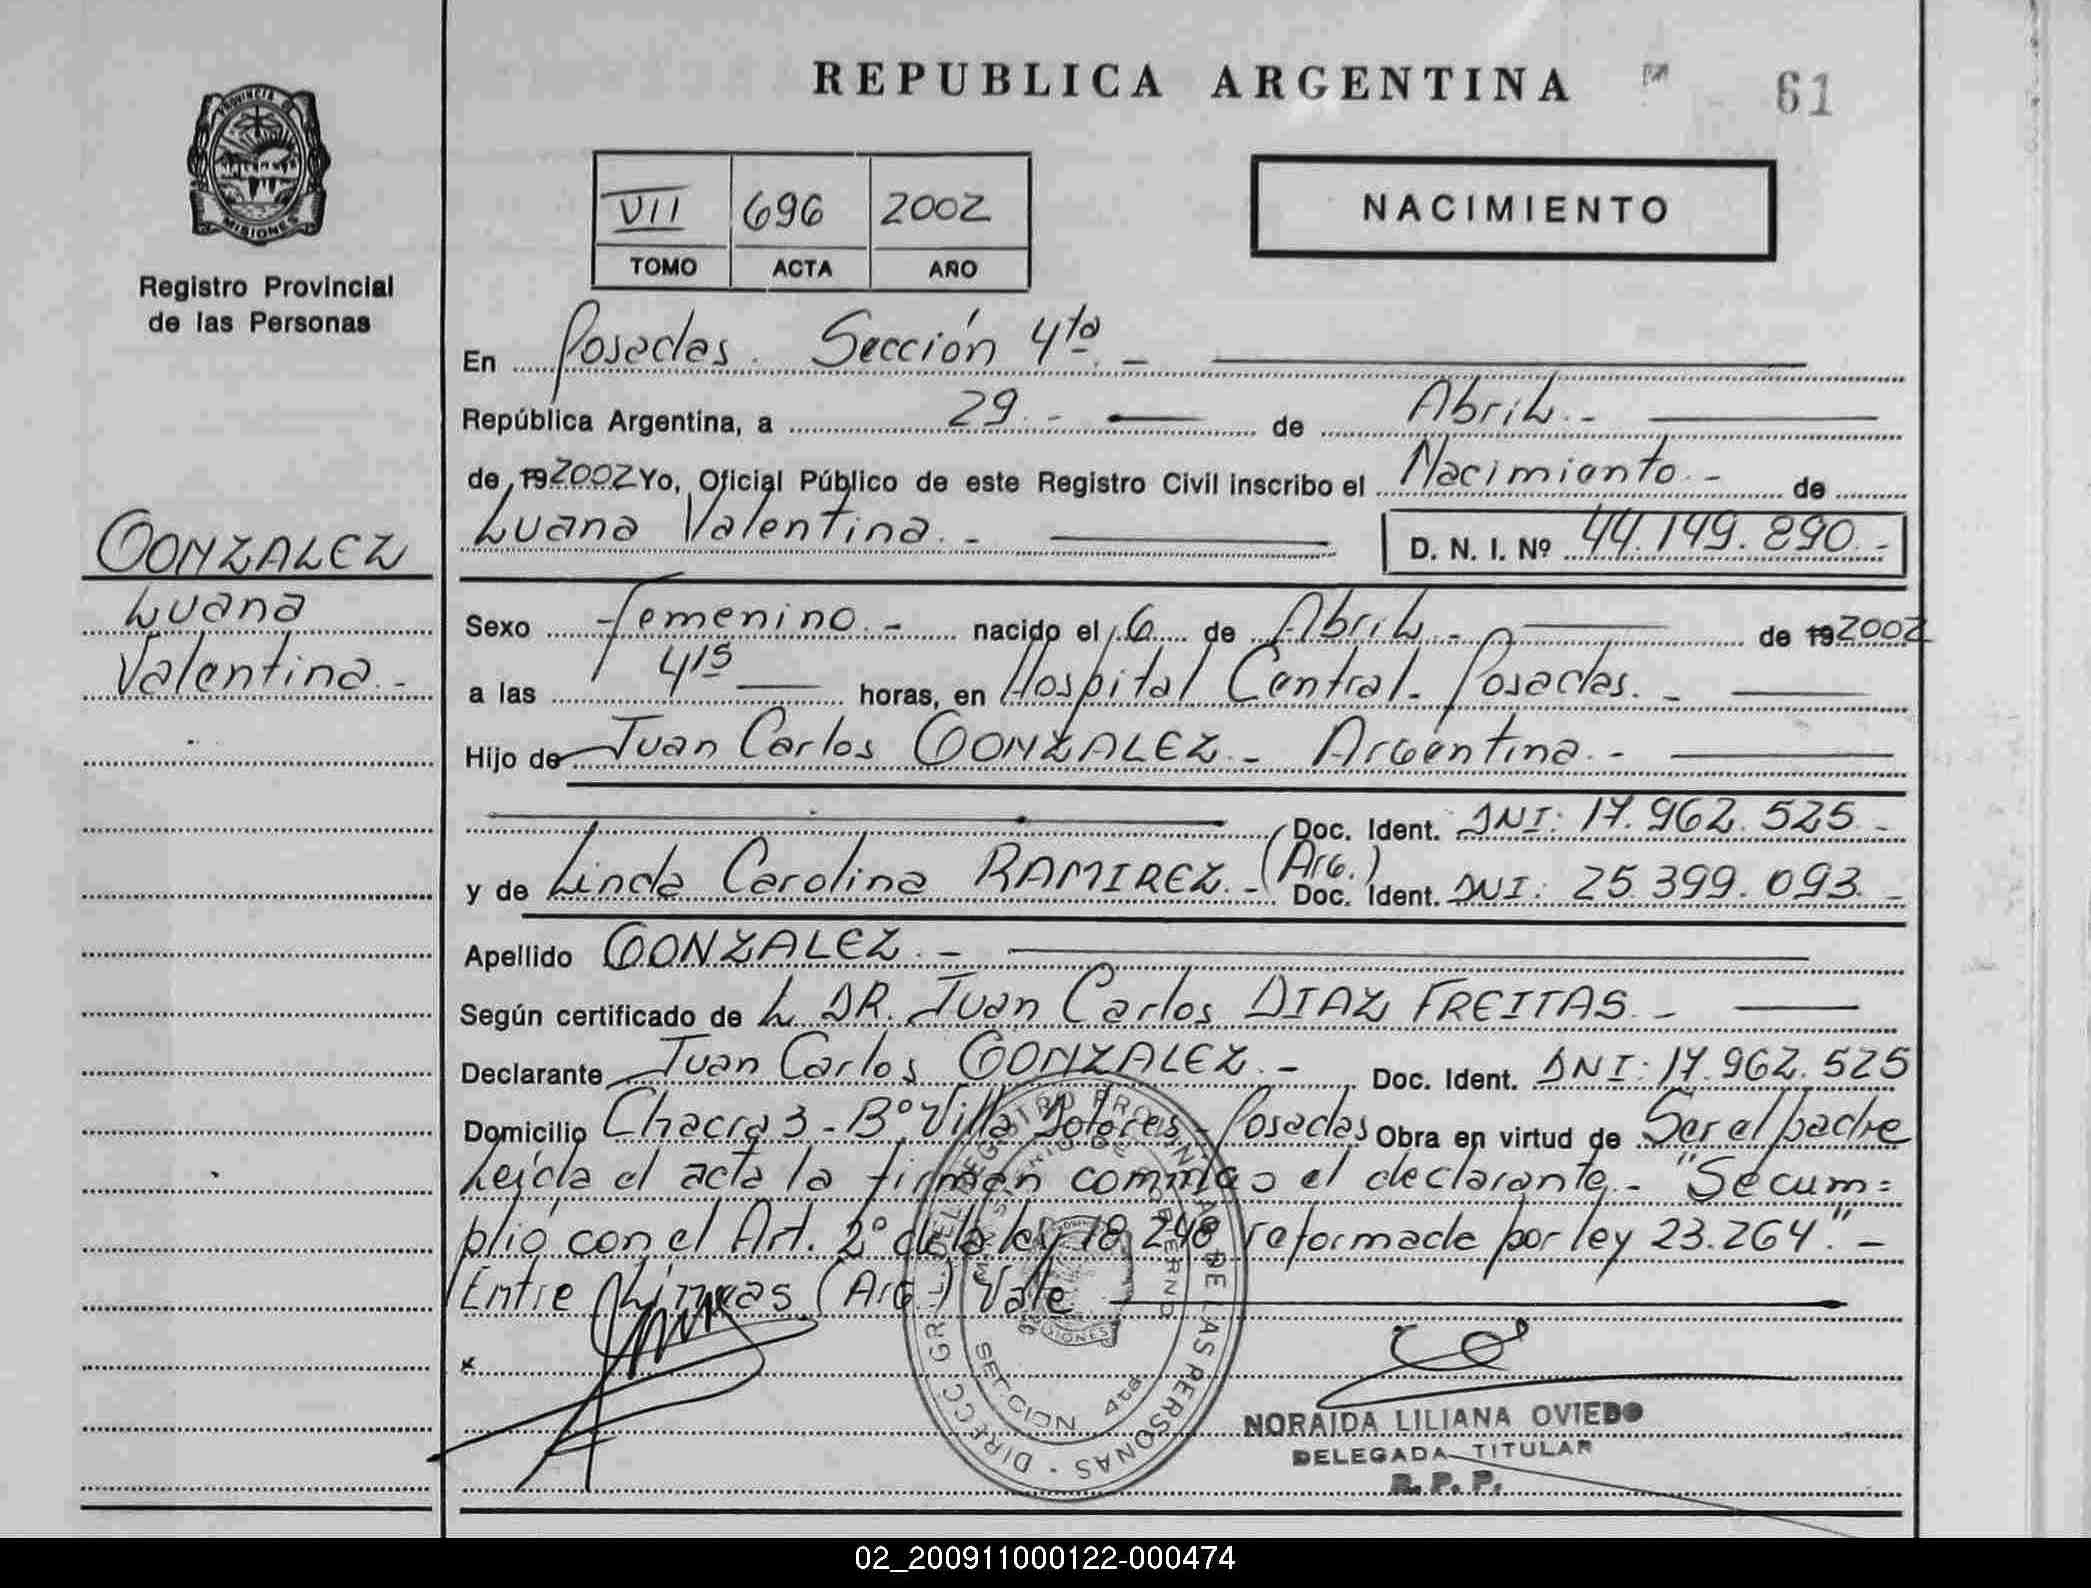 REPUBLICA ARGENTINA
61
PROVINCIA DE MISIONES
Registro Provincial
de las Personas
VII 696 2002
TOMO ACTA AÑO
NACIMIENTO
En Posadas. Sección 4ta. -
República Argentina, a 29.- de Abril.-
de 192002 Yo, Oficial Público de este Registro Civil inscribo el Nacimiento.- de
Luana Valentina.- D. N. I. Nº 44.149.890.-
GONZALEZ
Luana
Valentina.-
Sexo Femenino.- nacido el 6 de Abril.- de 192002
a las 4 15 horas, en Hospital Central. Posadas.-
Hijo de Juan Carlos GONZALEZ.- Argentina.-
Doc. Ident. DNI: 17.962.525.-
(Arg.)
y de Linda Carolina RAMIREZ.- Doc. Ident. DNI: 25.399.093.-
Apellido GONZALEZ.-
Según certificado de L DR. Juan Carlos DIAZ FREITAS.-
Declarante Juan Carlos GONZALEZ.- Doc. Ident. DNI: 17.962.525
Domicilio Chacra 3 - Bº Villa Dolores - Posadas Obra en virtud de Ser el padre
Leída el acta la firman conmigo el declarante.- "Se cum=
plió con el Art. 2º de la ley 18.248 reformada por ley 23.264".-
Entre Líneas (Arg.-) Vale
DIRECC. GRAL. DEL REGISTRO PROVINCIAL DE LAS PERSONAS
MINISTERIO DE GOBIERNO
MISIONES
SECCION 4ta
NORAIDA LILIANA OVIEDO
DELEGADA TITULAR
R. P. P.
02_200911000122-000474